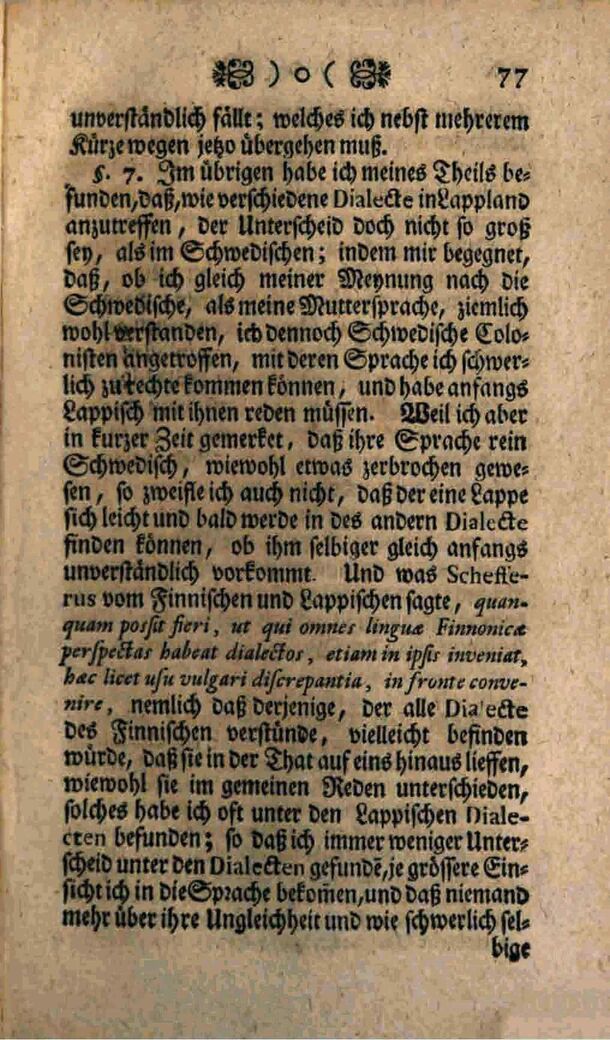 ) o ( 77
unverständlich fällt; welches ich nebst mehrerem
Kürze wegen jetzo übergehen muß.
§. 7. Im übrigen habe ich meines Theils be-
funden, daß, wie verschiedene Dialecte in Lappland
anzutreffen, der Unterscheid doch nicht so groß
sey, als im Schwedischen; indem mir begegnet,
daß, ob ich gleich meiner Meynung nach die
Schwedische, als meine Muttersprache, ziemlich
wohl verstanden, ich dennoch Schwedische Colo-
nisten angetroffen, mit deren Sprache ich schwer-
lich zu rechte kommen können, und habe anfangs
Lappisch mit ihnen reden müssen. Weil ich aber
in kurzer Zeit gemerket, daß ihre Sprache rein
Schwedisch, wiewohl etwas zerbrochen gewe-
sen, so zweifle ich auch nicht, daß der eine Lappe
sich leicht und bald werde in des andern Dialecte
finden können, ob ihm selbiger gleich anfangs
unverständlich vorkommt. Und was Scheffe-
rus vom Finnischen und Lappischen sagte, quan-
quam possit fieri, ut qui omnes linguæ Finnonicæ
perspectas habeat dialectos, etiam in ipsis inveniat,
hæc licet usu vulgari discrepantia, in fronte conve-
nire, nemlich daß derjenige, der alle Dialecte
des Finnischen verstünde, vielleicht befinden
würde, daß sie in der That auf eins hinaus lieffen,
wiewohl sie im gemeinen Reden unterschieden,
solches habe ich oft unter den Lappischen Diale-
cten befunden; so daß ich immer weniger Unter-
scheid unter den Dialecten gefundē, je grössere Ein-
sicht ich in die Sprache bekom̄en, und daß niemand
mehr über ihre Ungleichheit und wie schwerlich sel-
bige